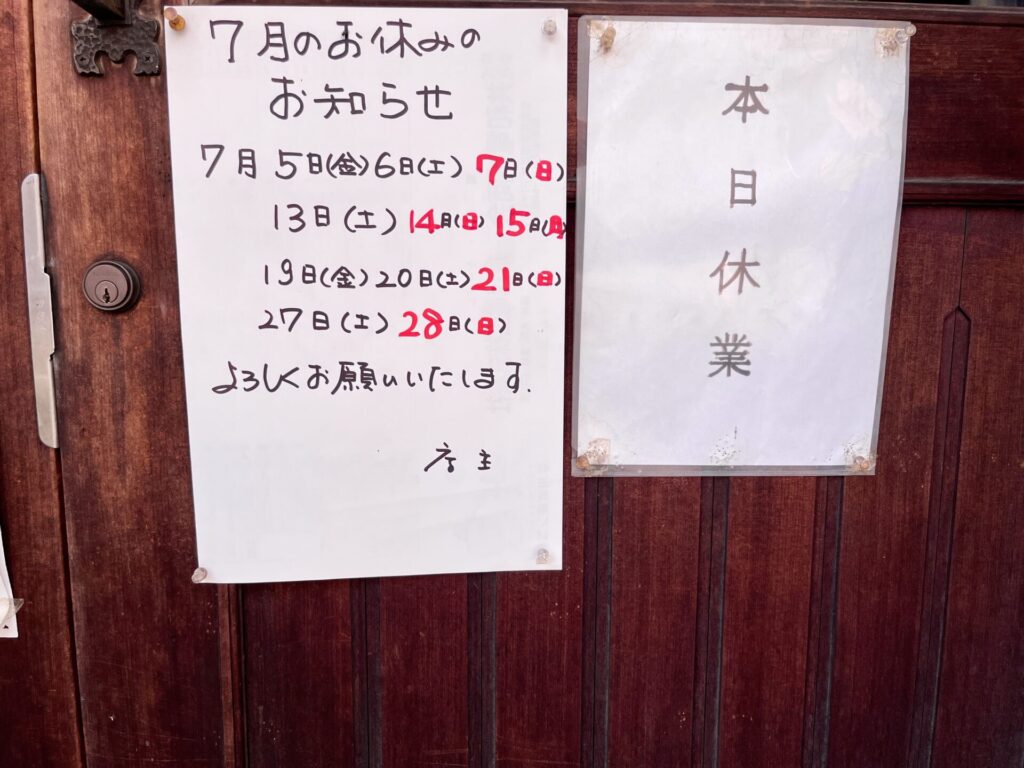 7月のお休みの
お知らせ
7月 5日(金)6日(土) 7日(日)
13日(土) 14日(日) 15日(月)
19日(金) 20日(土) 21日(日)
27日(土) 28日(日)
よろしくお願いいたします.
店主
本日休業